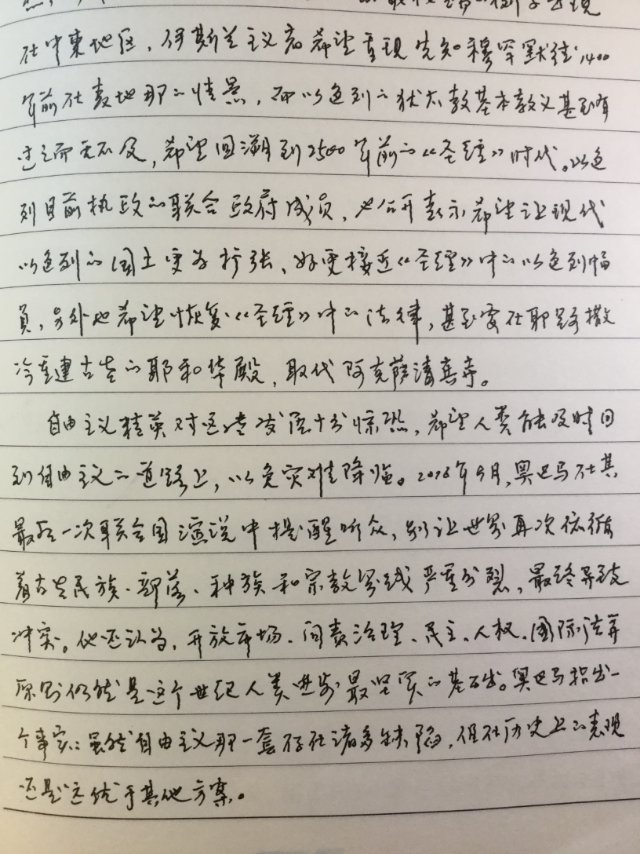 在中東地区，伊斯兰主义者希望重現先知穆罕默德1400
年前在麦地那的情景，而以色列的犹太教基本教义甚至有
过之而无不及，希望回溯到2500年前的《圣經》时代。以色
列目前执政的联合政府成员，也公开表示希望让現代
以色列的国土更为扩张、好更接近《圣經》中的以色列幅
員，另外也希望恢复《圣經》中的法律，甚至要在耶路撒
冷重建古老的耶和华殿，取代阿克萨清真寺。
自由主义精英对这些发展十分惊恐，希望人类能及时回
到自由主义的道路上，以免灾难降临。2016年9月，奥巴马在其
最后一次联合国演说中提醒听众，别让世界再次依循
着古老民族、部落、种族和宗教界线严重分裂，最终导致
冲突。他还认为，开放市场、问责治理、民主、人权、国际法等
原则仍然是这个世纪人类进步最坚实的基础。奥巴马指出一
个事实：虽然自由主义那一套存在诸多缺陷，但在历史上的表現
还是远优于其他方案。